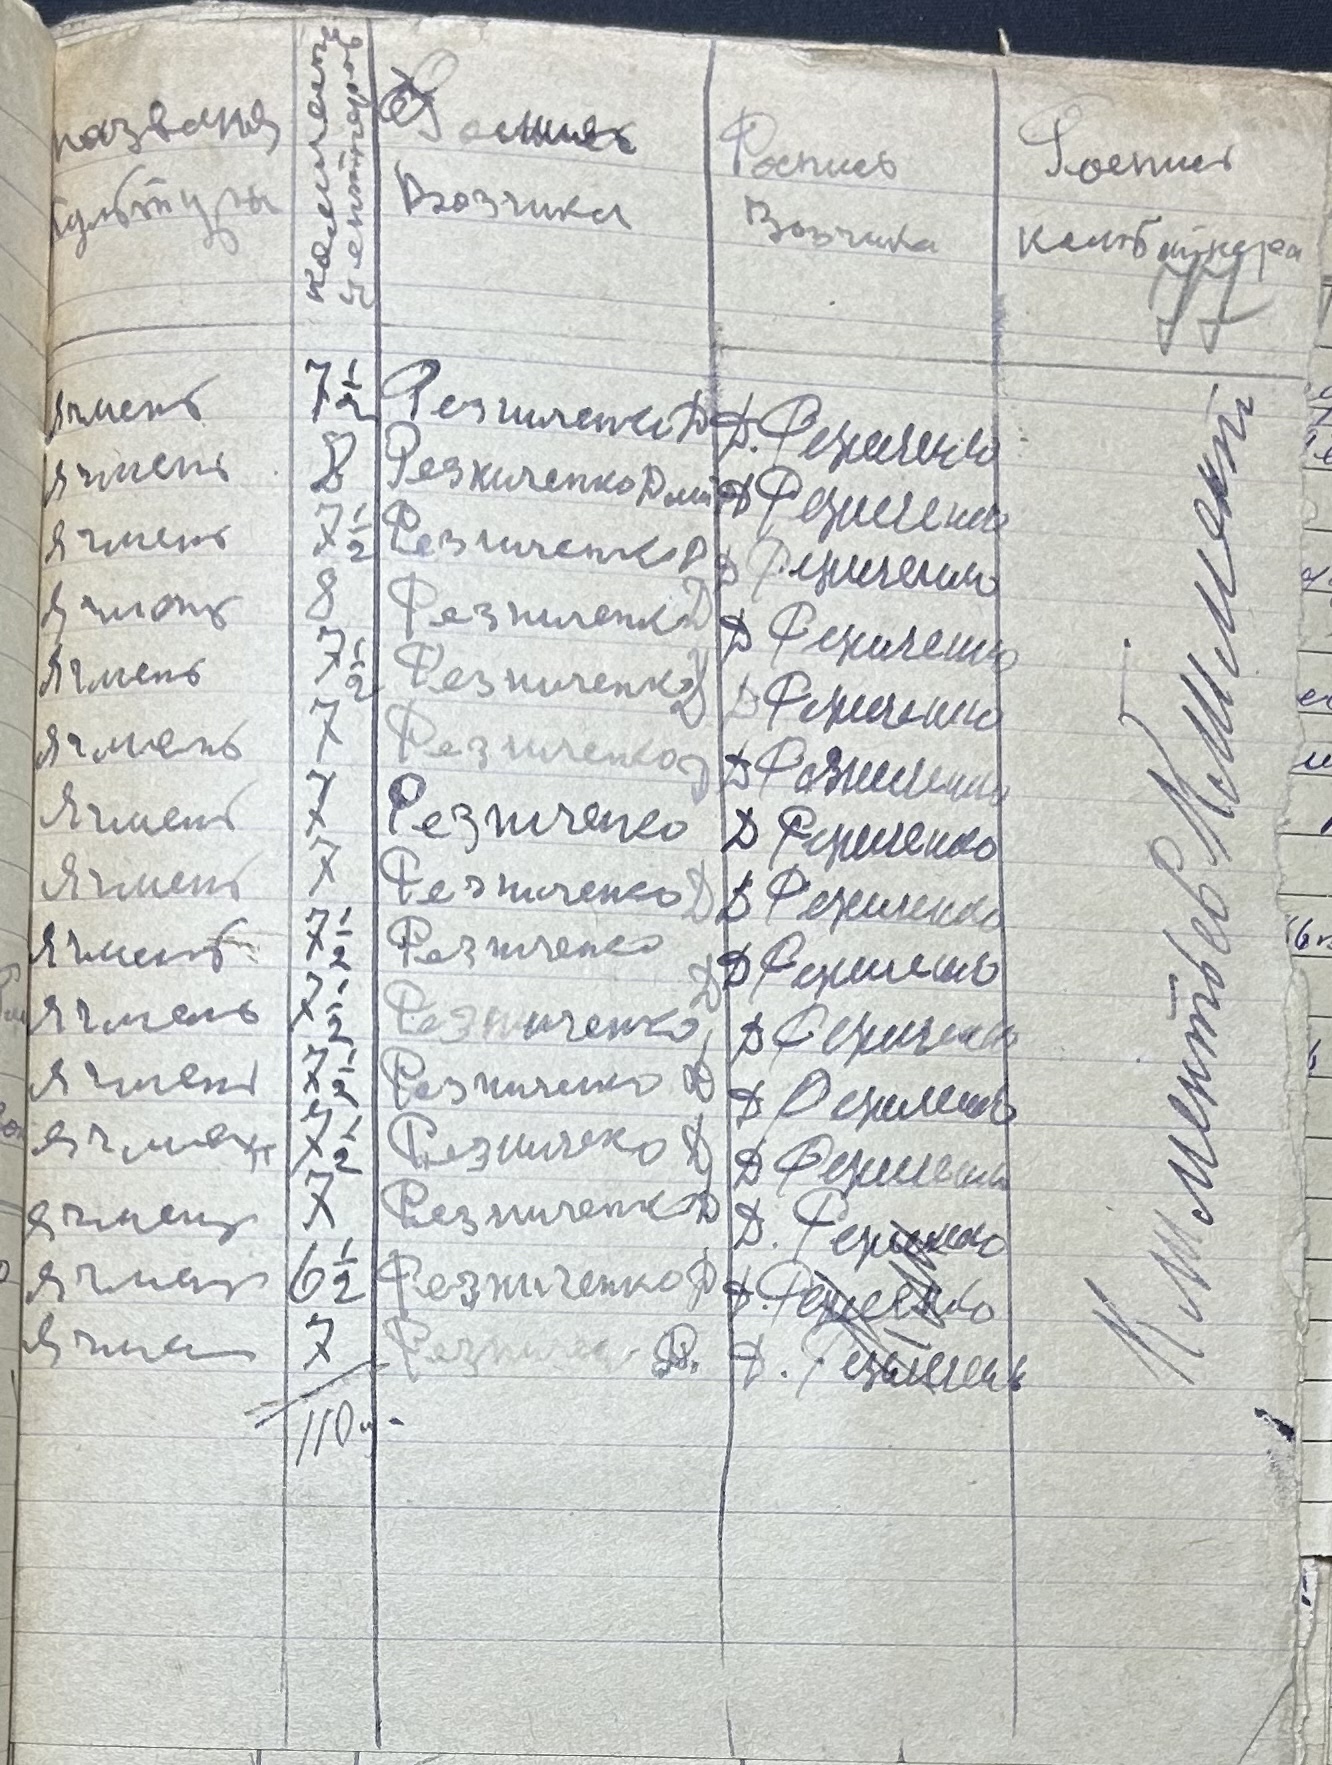 названия количество центнеров Роспись Роспись Роспись
культуры Возчика Возчика комбайнера
77
ячмень 7 1/2 Резниченко Д Д. Резниченко
ячмень 8 Резниченко Дми Д Резниченко
ячмень 7 1/2 Резниченко Д Д Резниченко
ячмень 8 Резниченко Д Д Резниченко
ячмень 7 1/2 Резниченко Д Д Резниченко
ячмень 7 Резниченко Д Д Резниченко
ячмень 7 Резниченко Д Резниченко
ячмень 7 Резниченко Д Д Резниченко
ячмень 7 1/2 Резниченко Д Д Резниченко
ячмень 7 1/2 Резниченко Д Резниченко
ячмень 7 1/2 Резниченко Д Д Резниченко
ячмень 7 1/2 Резничеко Д Д Резниченко
ячмень 7 Резниченко Д Д. Резниченко
ячмень 6 1/2 Резниченко Д Д. Резниченко
ячмен 7 Резничен Д. Д. Резниченко
110ц.
Климентьев Климент